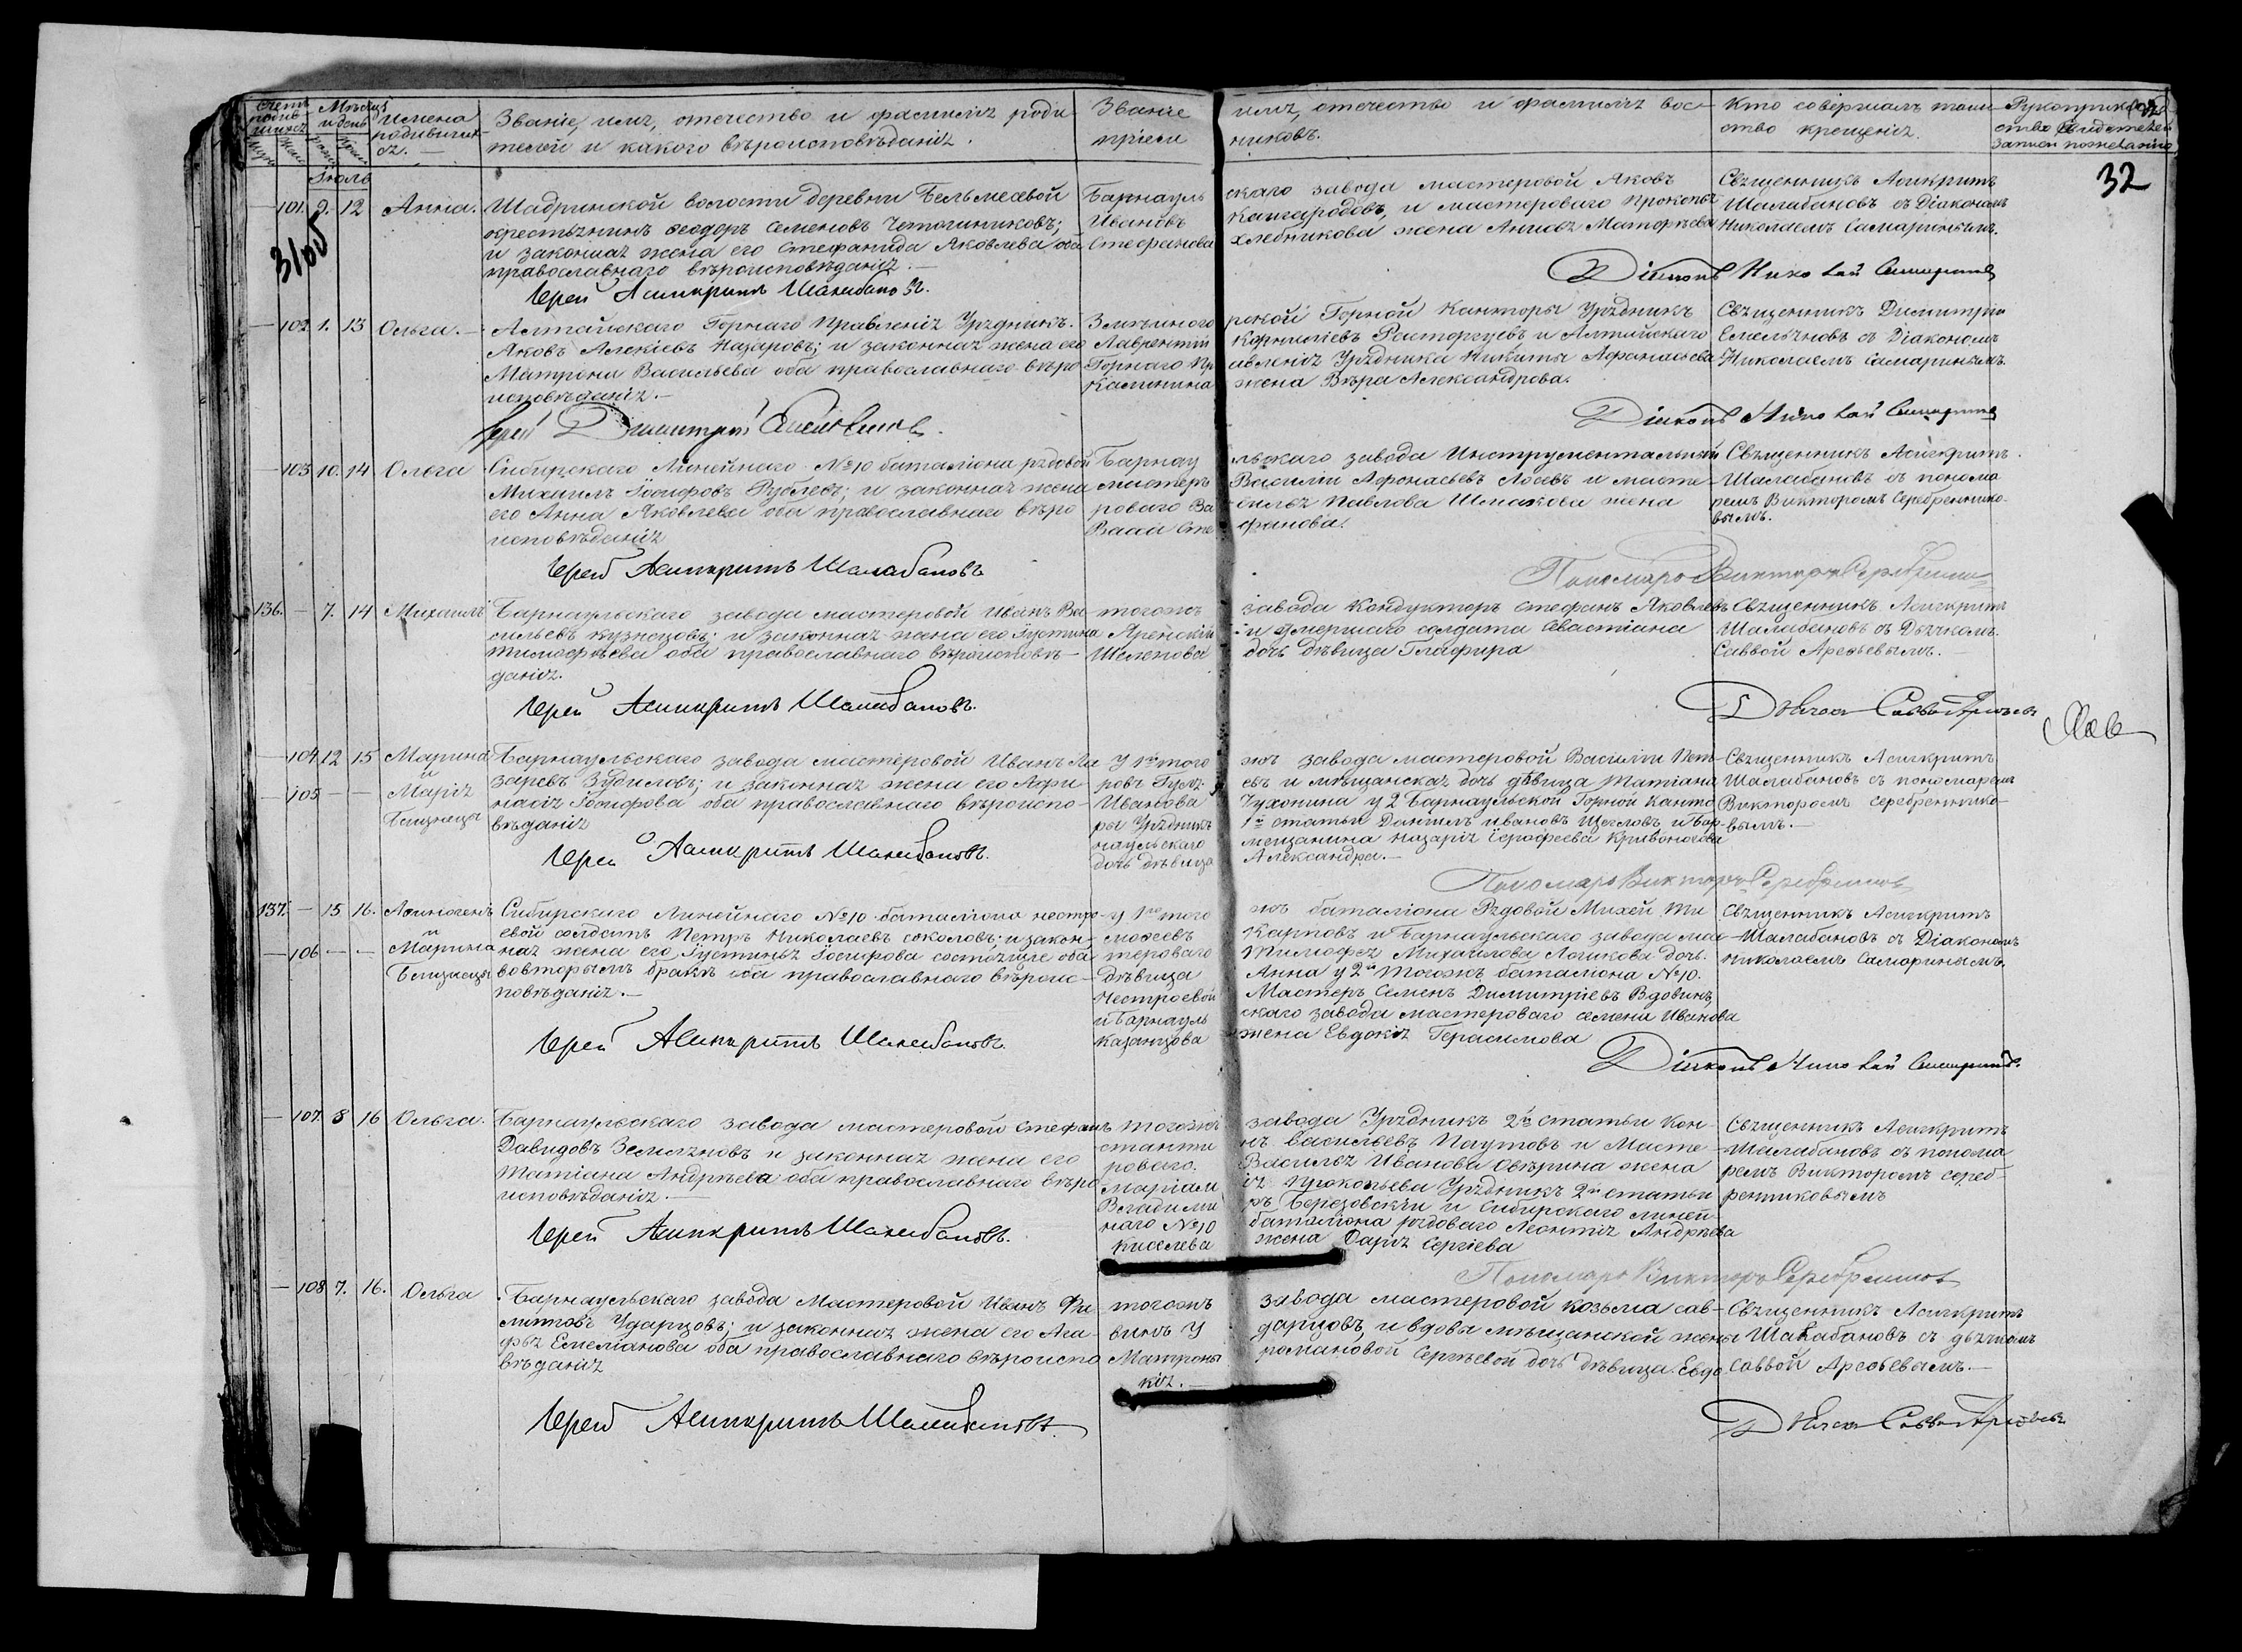 Счетъ родившихся
Мѣсяцъ и день
Имена родившихся.
Званіе, имя, отечество и фамилія роди-
телей и какого вѣроисповѣданія.
Званіе имя, отечество и фамилія вос-
пріемниковъ.
Кто совершалъ таин-
ство крещенія.
Рукоприклад-
ство свидетелей
записи по желанію
32
Іюль
101. 9. 12 Анна.
Шадринской волости деревни Бельмесевой
крестьянинъ Ѳеодоръ Семеновъ
и законная жена его Стефанида Яковлева оба
православнаго вѣроисповѣданія.
Іерей Асинкритъ Шалабановъ.
Барнауль скаго завода мастеровой Яковъ
Ивановъ Кайгародовъ, и мастероваго Прокопья
Стефанова Хлебникова жена Анисья Матфѣева
Священникъ Асигкритъ
Шалабановъ съ Діакономъ
Николаемъ Самаринымъ.
Діаконъ Николай Самаринъ
102. 1. 13 Ольга.
Алтайскаго Горнаго Правленія Урядникъ
Яковъ Алексіевъ Назаровъ; и законная жена его
Матрона Васильева оба православнаго вѣро
исповѣданія.
Іерей Димитрій Емельяновъ.
Змѣиного рской Горной Канторы Урядникъ
Лаврентій Корниліевъ Расторгуевъ и Алтайскаго
Горнаго Пр авленія Урядника Никиты Афанасьева
Калинина жена Вѣра Александрова.
Священникъ Димитрій
Емельяновъ съ Діакономъ
Николаемъ Самаринымъ.
Діаконъ Николай Самаринъ
103 10. 14. Ольга
Сибирскаго Линейнаго №10 баталіона рядовой
Михаилъ Іосифовъ Рублевъ; и законная жена
его Анна Яковлева оба православнаго вѣро
исповѣданія
Іерей Асинкритъ Шалабановъ
Барнау льскаго завода Инструментальный
мастеръ Василій Афонасьевъ Лосевъ и масте-
роваго Ва силья Павлова Шмакова жена
Васса Сте фанова.
Священникъ Асигкритъ
Шалабановъ съ понома
ремъ Викторомъ Серебреннико-
вымъ.
Пономарь Викторъ Серебрениковъ
136. — 7. 14 Михаилъ
Барнаульскаго завода мастеровой Иванъ Ва-
сильевъ Кузнецовъ; и законная жена его Іустина
Тимофѣева оба православнаго вѣроисповѣ-
данія.
Іерей Асинкритъ Шалабановъ.
тогожъ завода Кондукторъ Стефанъ Яковлевъ
Аренскій и умершаго солдата Севастіана
Шеленова дочь дѣвица Глафира
Священникъ Асигкритъ
Шалабановъ съ Дьячкомъ
Саввой Арефьевымъ.
Дьячекъ Савва Арефьевъ
104 12 15 Марина
и
105 — — Марія
Близнецы
Барнаульскаго завода мастеровой Иванъ Ла
заревъ Зудиловъ; и законная жена его Агри
Іосифова оба православнаго вѣроиспо-
вѣданія
Іерей Асинкритъ Шалабановъ.
У 1й того жъ завода мастеровой Василій Пет-
ровъ евъ и мѣщанская дочь дѣвица Татіана
Иванова Чухонина у 2 Барнаульской Горной канто
ры Урядникъ 1й статьи Даніилъ Ивановъ Щегловъ и Бар-
наульскаго мещанина Назарія Ерофеева Кривоногова
дочь дѣвица Александра.
Священникъ Асигкритъ
Шалабановъ съ пономаремъ
Викторомъ Серебреннико-
вымъ.
Пономарь Викторъ Серебрениковъ
137. — 15 16. Аѳиногенъ
и
106 — — Марина
Близнецы
Сибирскаго Линейнаго №10 баталіона нестро-
евой солдатъ Петръ Николаевъ Соколовъ; и закон-
ная жена его Іустинья Іосифова состоящіе оба
вовторымъ бракѣ оба православнаго вѣроис-
повѣданія.
Іерей Асинкритъ Шалабановъ.
у 1го того жъ баталіона Рядовой Михей Ти
мофеевъ Карповъ и Барнаульскаго завода мас-
тероваго Тимофея Михайлова Логикова дочь
дѣвица Анна у 2й Тогожъ баталіона №10.
Нестроевой Мастеръ Семенъ Димитріевъ Вдовинъ,
и Барнауль скаго завода мастероваго Семена Иванова
Казанцова жена Евдокія Герасимова
Священникъ Асигкритъ
Шалабановъ съ Діакономъ
Николаемъ Самаринымъ.
Діаконъ Николай Самаринъ.
107. 8 16 Ольга.
Барнаульскаго завода мастеровой Стефанъ
Давидовъ Земляновъ и законная жена его
Татіана Андрѣева оба православнаго вѣро
исповѣданія.
Іерей Асинкритъ Шалабановъ.
тогожъ завода Урядникъ 2й статьи Кон-
станти нъ Васильевъ Паутовъ и Масте-
роваго. Василья Иванова Овѣрина жена
Маріам ія Прокопьева Урядникъ 2й статьи
Владими ръ Березовскій и Сибирскаго линей-
наго №10 баталіона рядоваго Леонтія Андрѣева
Киселева жена Дарья Сергіева
Священникъ Асигкритъ
Шалабановъ съ понома
ремъ Викторомъ сереб-
рениковымъ
Пономарь Викторъ Серебрениковъ
108 7. 16. Ольга
Барнаульскаго завода Мастеровой Иванъ Фи-
липповъ Ударцовъ; и законная жена его Ага-
фья Емеліанова оба православнаго вѣроиспо
вѣданія
Іерей Асинкритъ Шалабановъ.
тогожъ завода мастеровой Козьма Сав-
винъ Ударцовъ, и вдовы мѣщанской жены
Матроны Романовой Сергѣевой дочь дѣвица Евдо
кія.
Священникъ Асигкритъ
Шалабановъ съ дьячкомъ
Саввой Арефьевымъ.
Дьячекъ Савва Арефьевъ